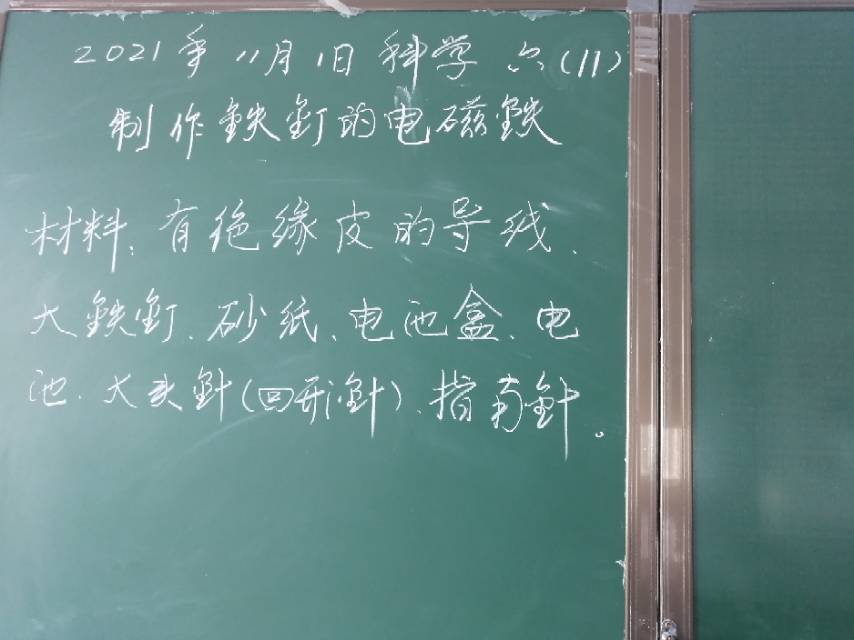 2021年11月1日科学 六(11)
制作铁钉的电磁铁
材料:有绝缘皮的导线、
大铁钉、砂纸、电池盒、电
池、大头针(回形针)、指南针。